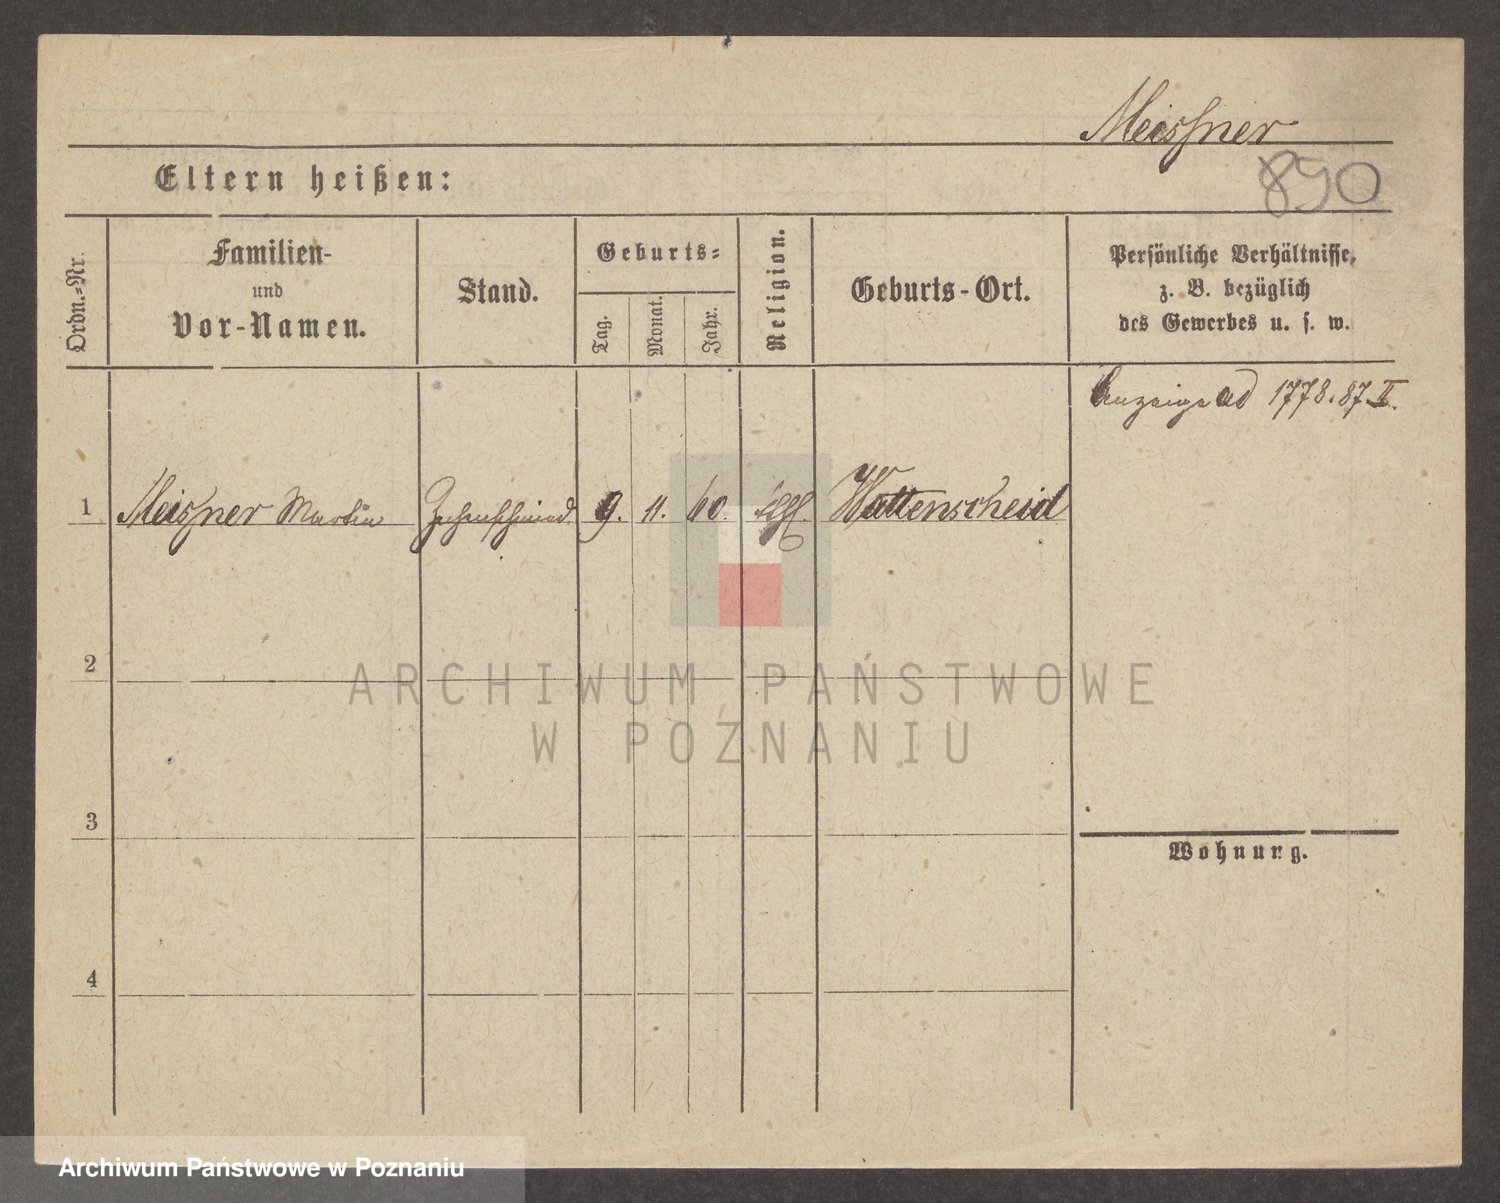 Meisſner
890
Eltern heißen:
Ordn.=Nr.
Familien-
und
Vor-Namen.
Stand.
Geburts=
Tag.
Monat.
Jahr.
Religion.
Geburts-Ort.
Persönliche Verhältnisse,
z. B. bezüglich
des Gewerbes u. s. w.
Anzeige ad 1778.87.II.
1 Meisſner Martin Zechenschmied 9. 11. 60. Wattenscheid
2
3
4
Wohnung.
ARCHIWUM PAŃSTWOWE
W POZNANIU
Archiwum Państwowe w Poznaniu